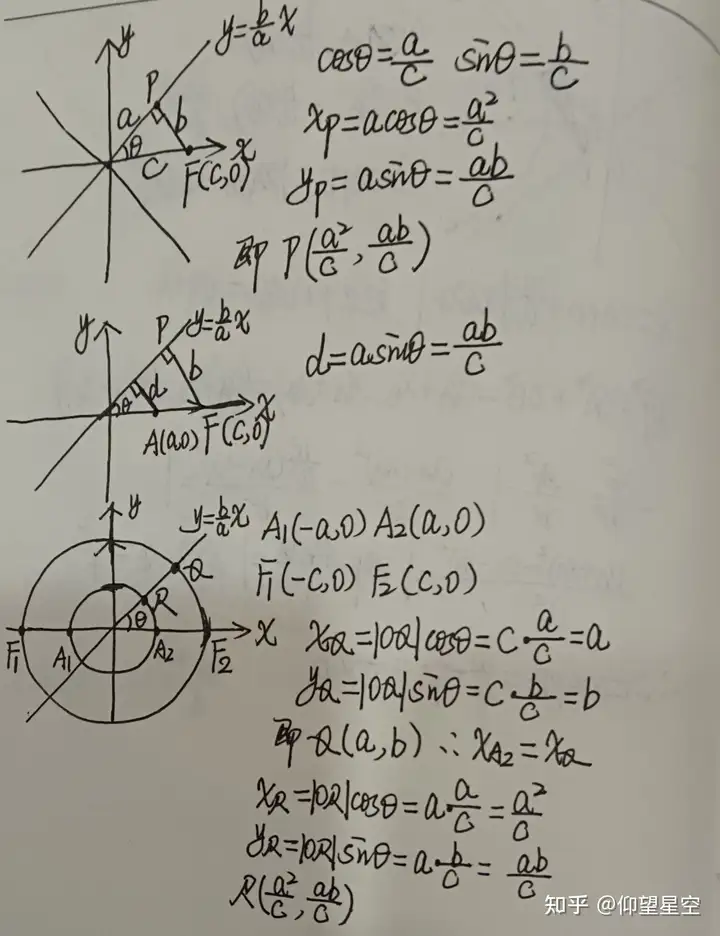 y
y=b/a x
P
a
b
θ
c
x
F(C,0)
cosθ=a/c sinθ=b/c
xp=acosθ=a²/c
yp=asinθ=ab/c
即 P(a²/c, ab/c)
y
P
y=b/a x
b
d
θ
x
A(a,0)
F(C,0)
d=asinθ=ab/c
y
y=b/a x
Q
R
θ
x
F₁
A₁
A₂
F₂
A₁(-a,0) A₂(a,0)
F₁(-C,0) F₂(C,0)
xQ=|OQ|cosθ=C·a/c=a
yQ=|OQ|sinθ=C·b/c=b
即 Q(a,b) ∴ xA₂=xQ
xR=|OR|cosθ=a·a/c=a²/c
yR=|OR|sinθ=a·b/c=ab/c
R(a²/c, ab/c)
知乎 @仰望星空